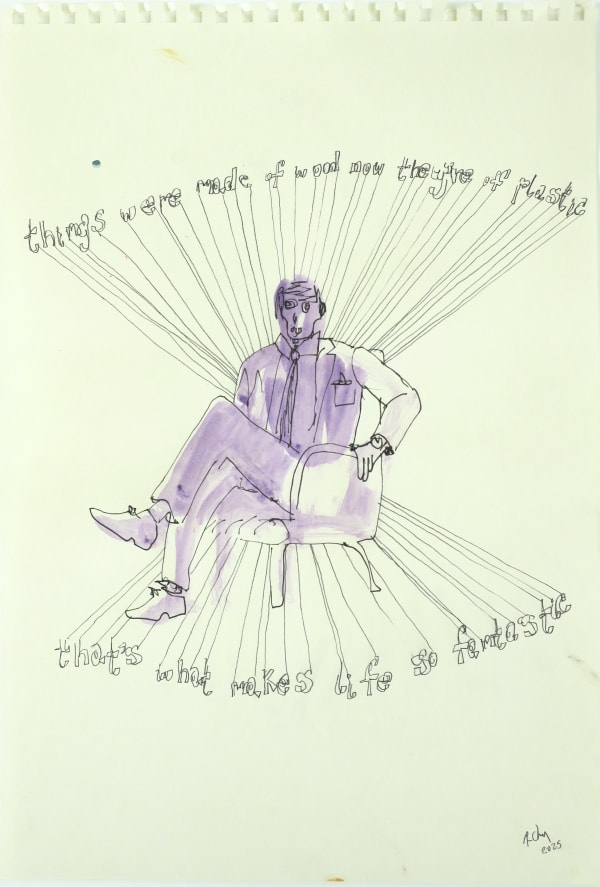 things were made of wood now they're of plastic
that's what makes life so fantastic
2025